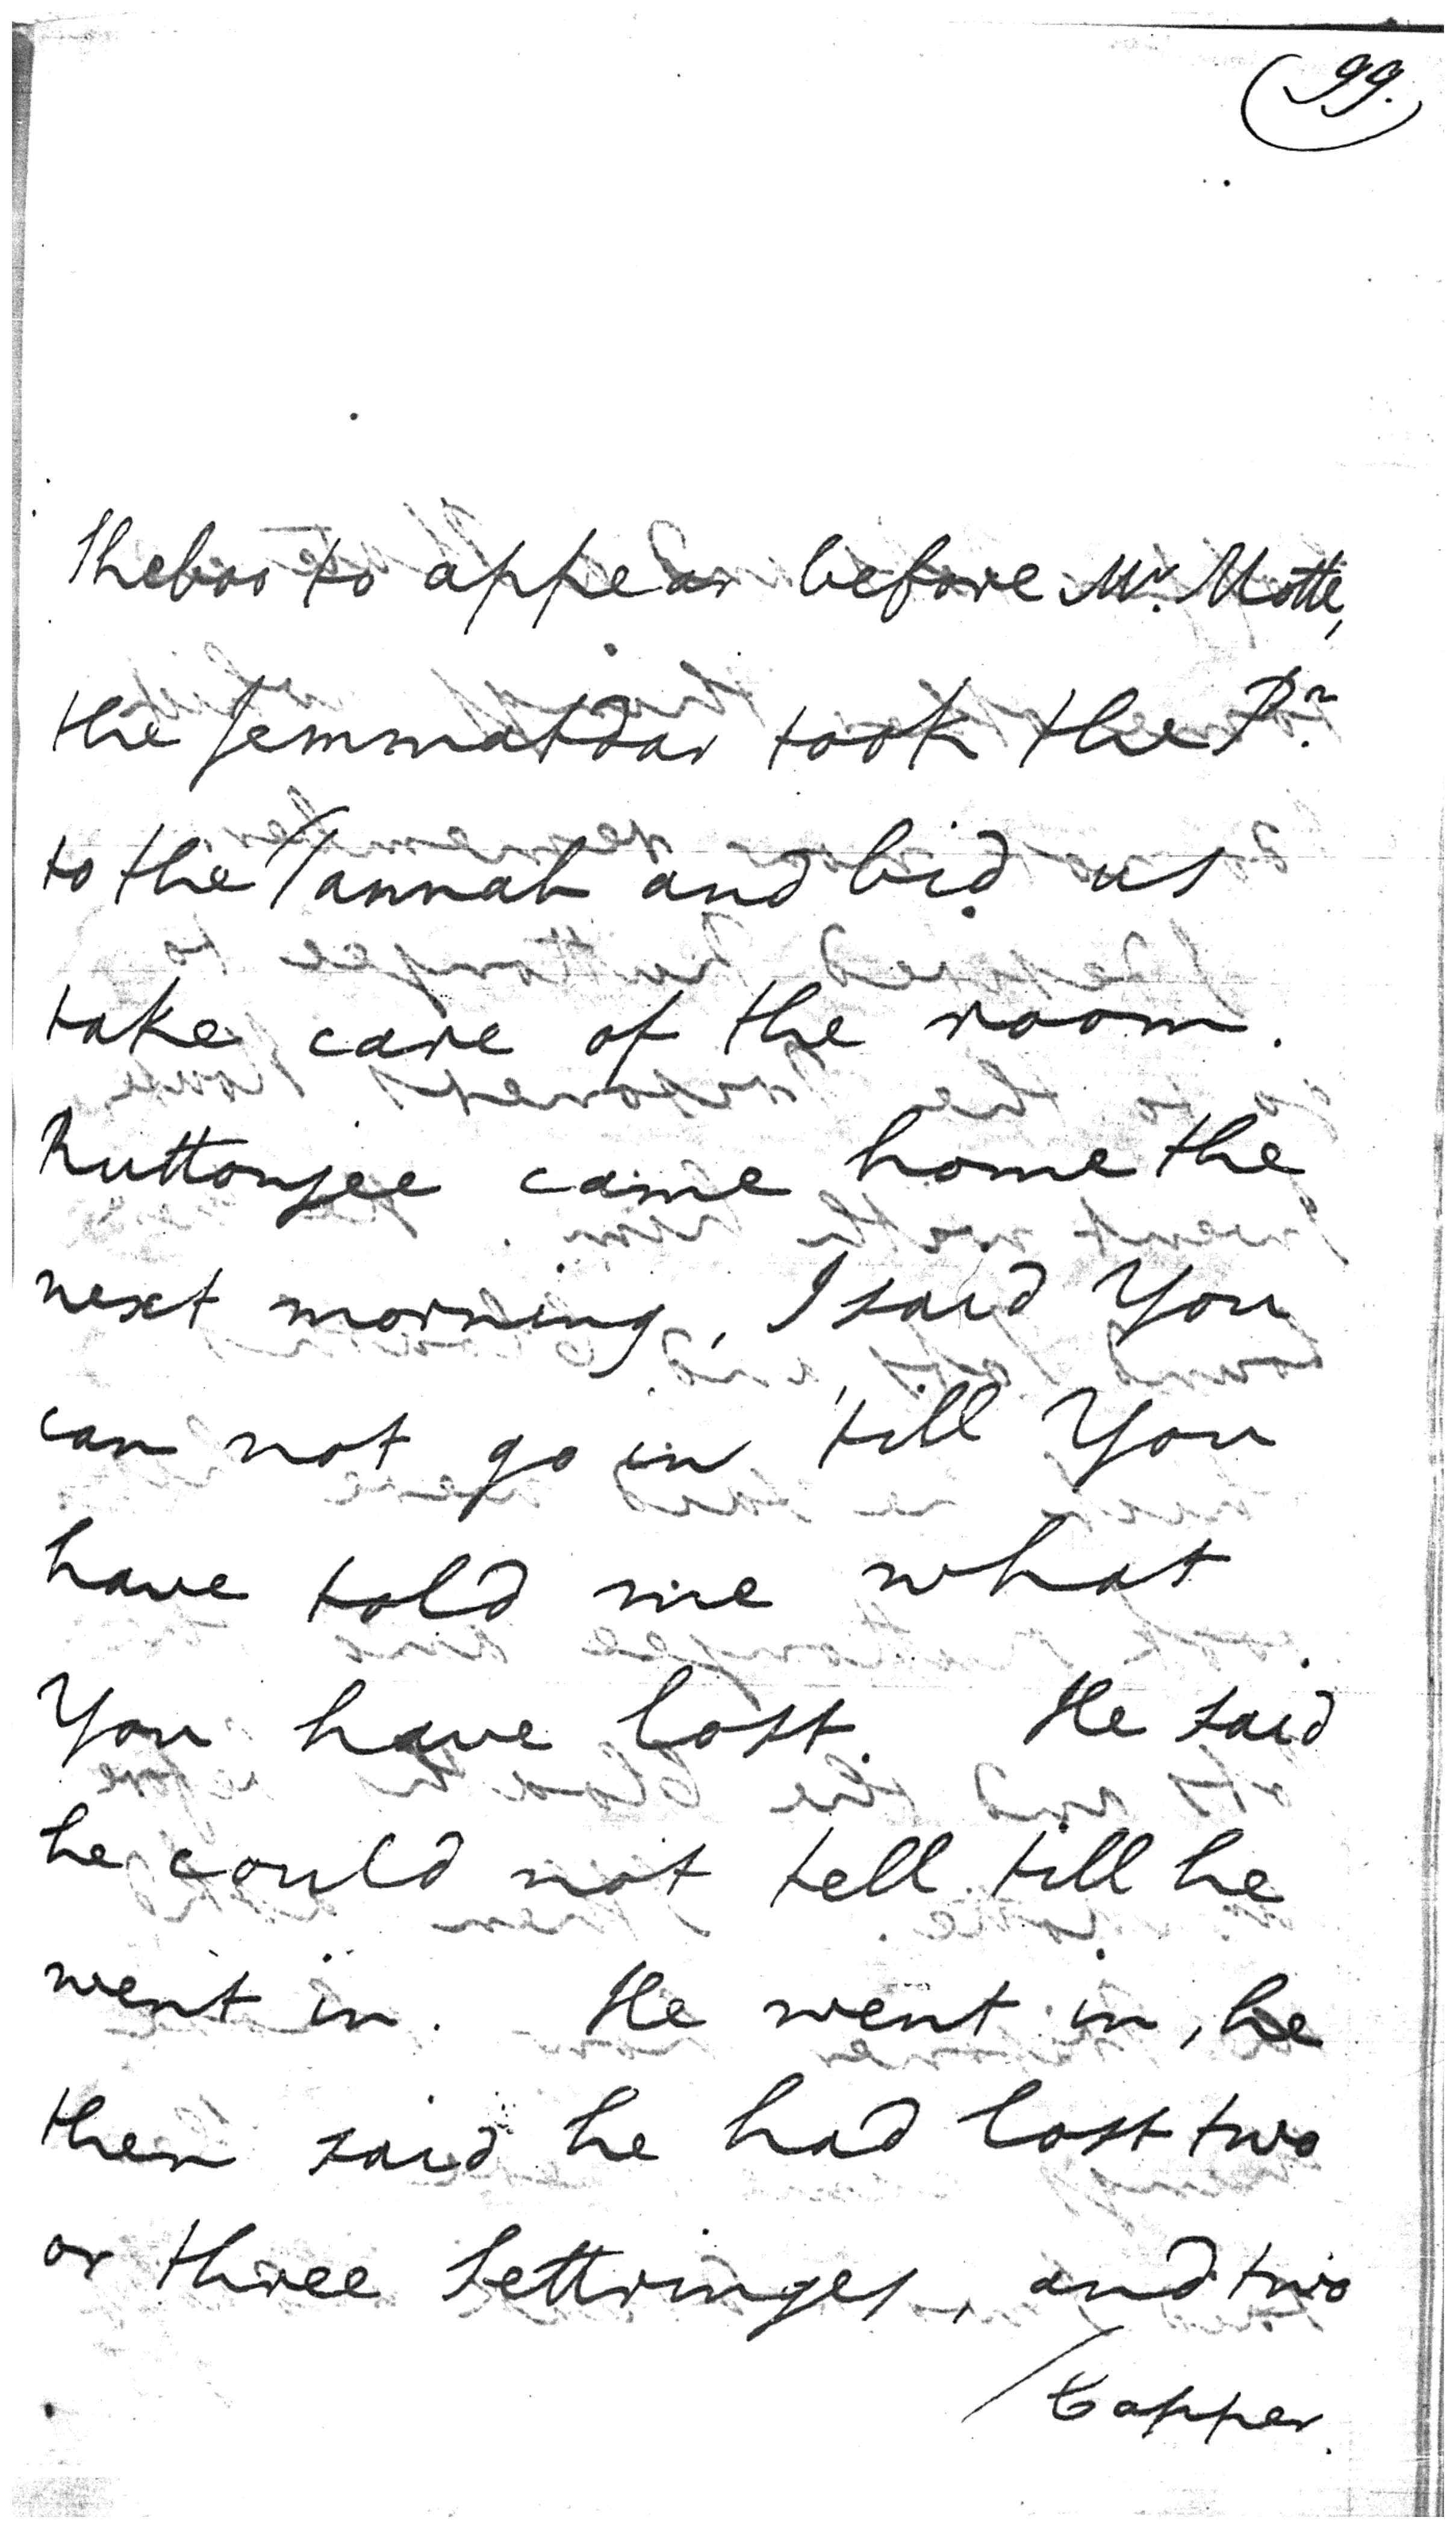 99.
Sheboo to appear before Mr. Motte,
the Jemmatdar took the Pr.
to the Tannah and bid us
take care of the room.
Ruttonjee came home the
next morning, I said You
can not go in 'till You
have told me what
You have lost. He said
he could not tell till he
went in. He went in, he
then said he had lost two
or three Settringes, and two
/Copper.